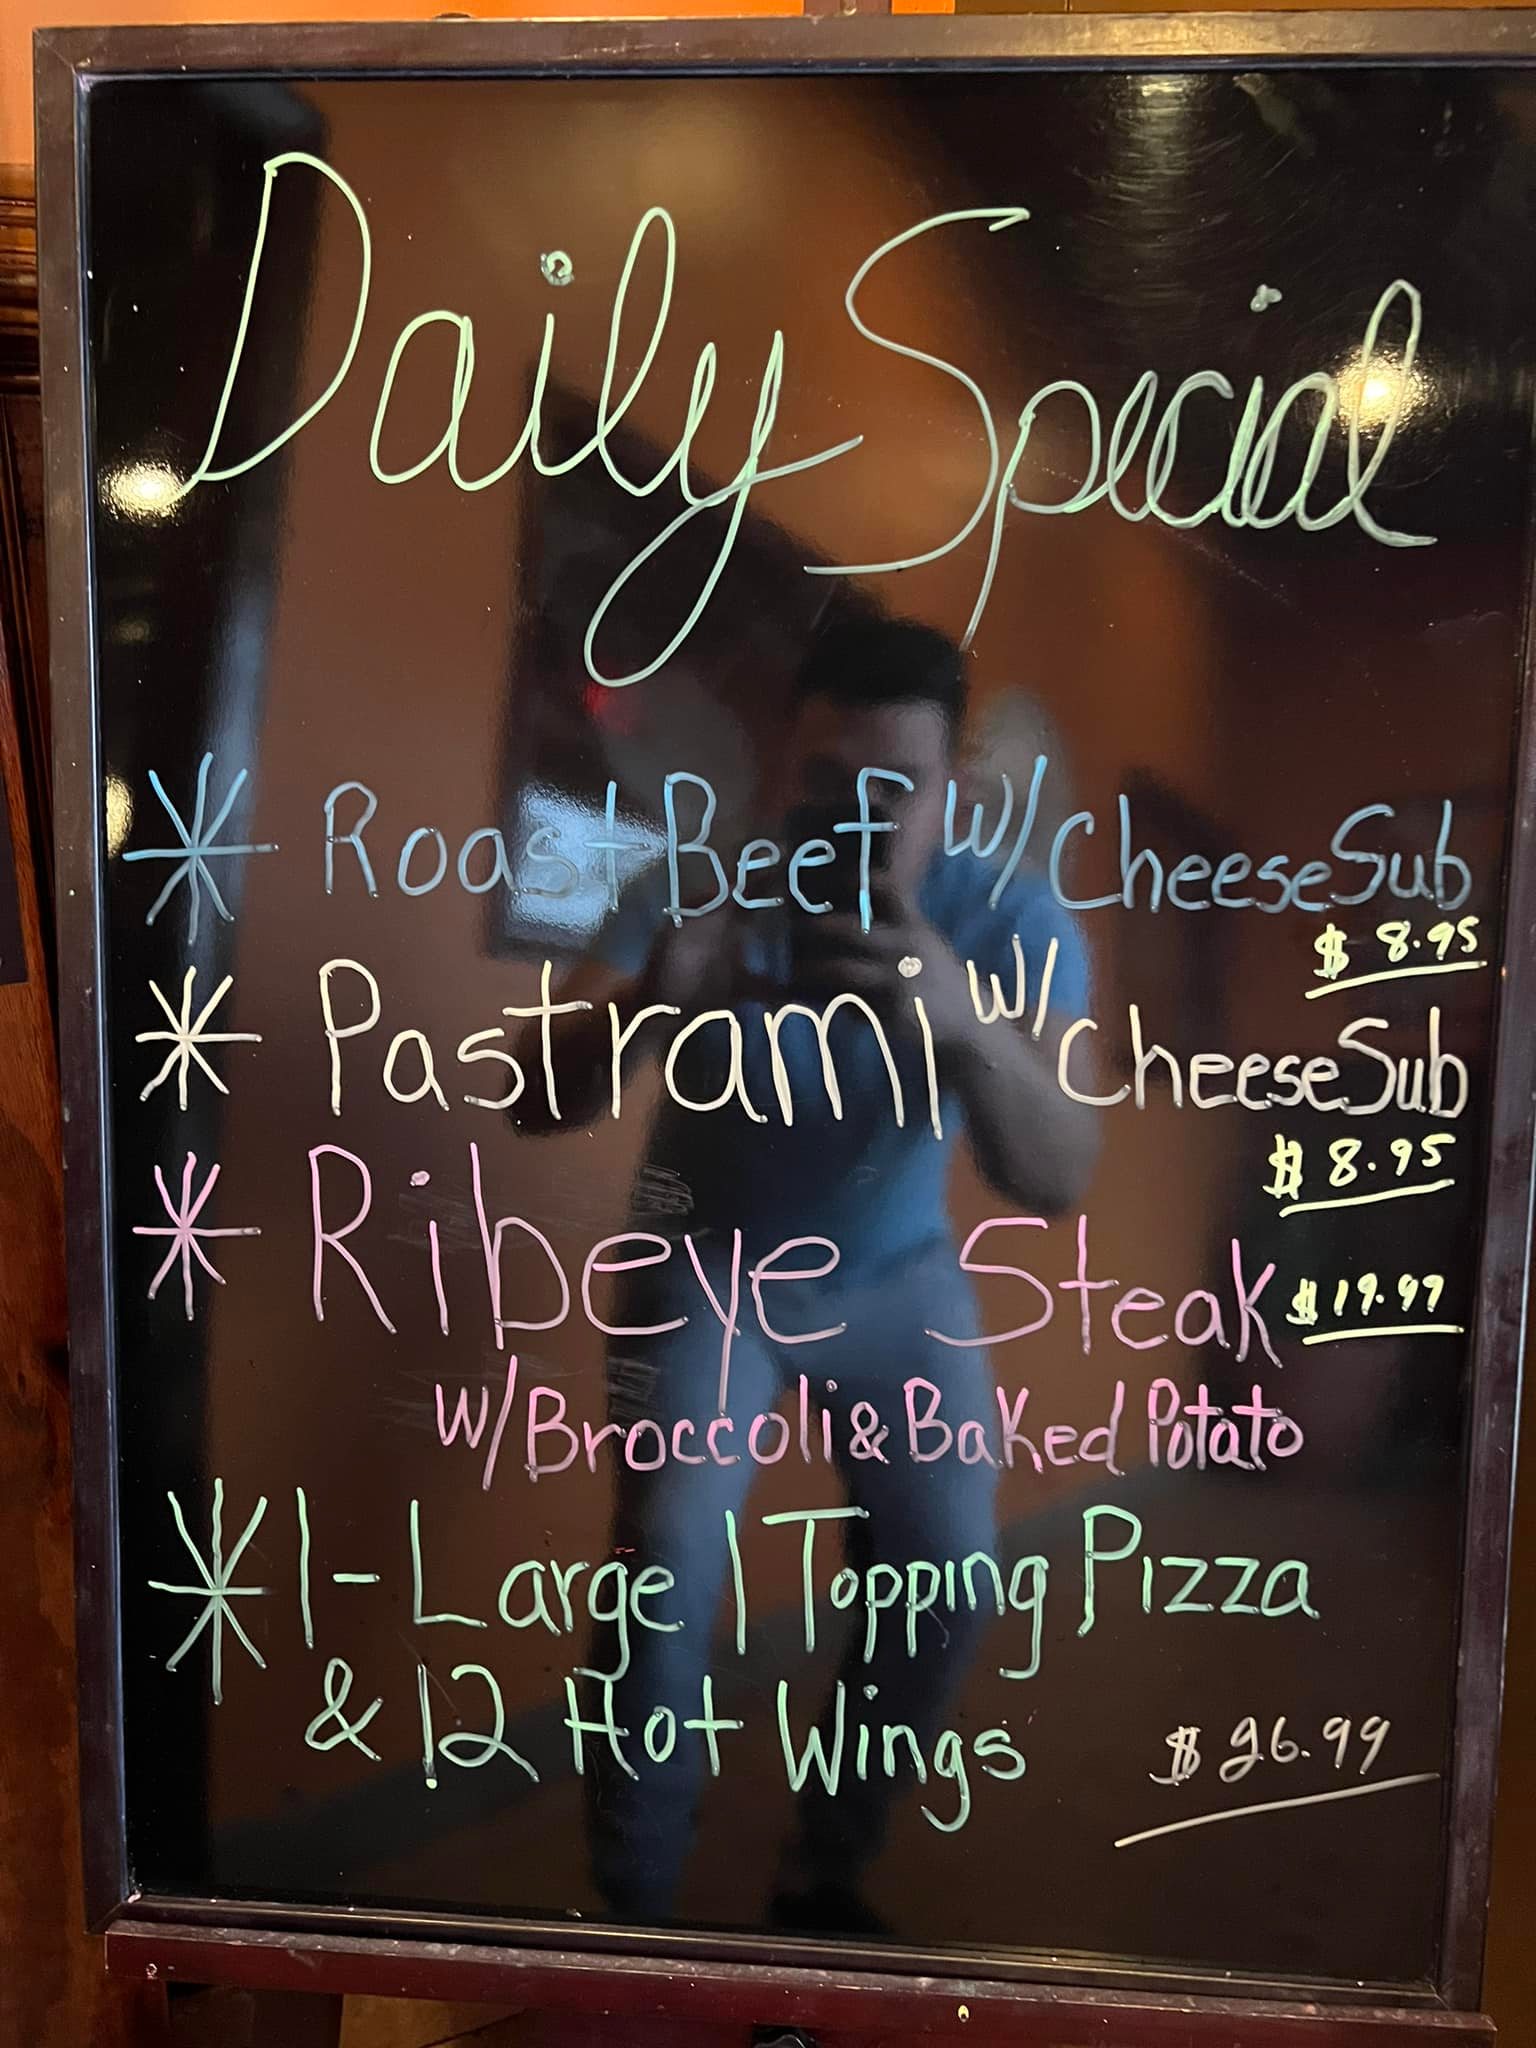 Daily Special
* Roast Beef w/ Cheese Sub
$ 8.95
* Pastrami w/ Cheese Sub
$ 8.95
* Ribeye Steak $19.99
w/Broccoli & Baked Potato
* 1-Large 1 Topping Pizza
& 12 Hot Wings $26.99